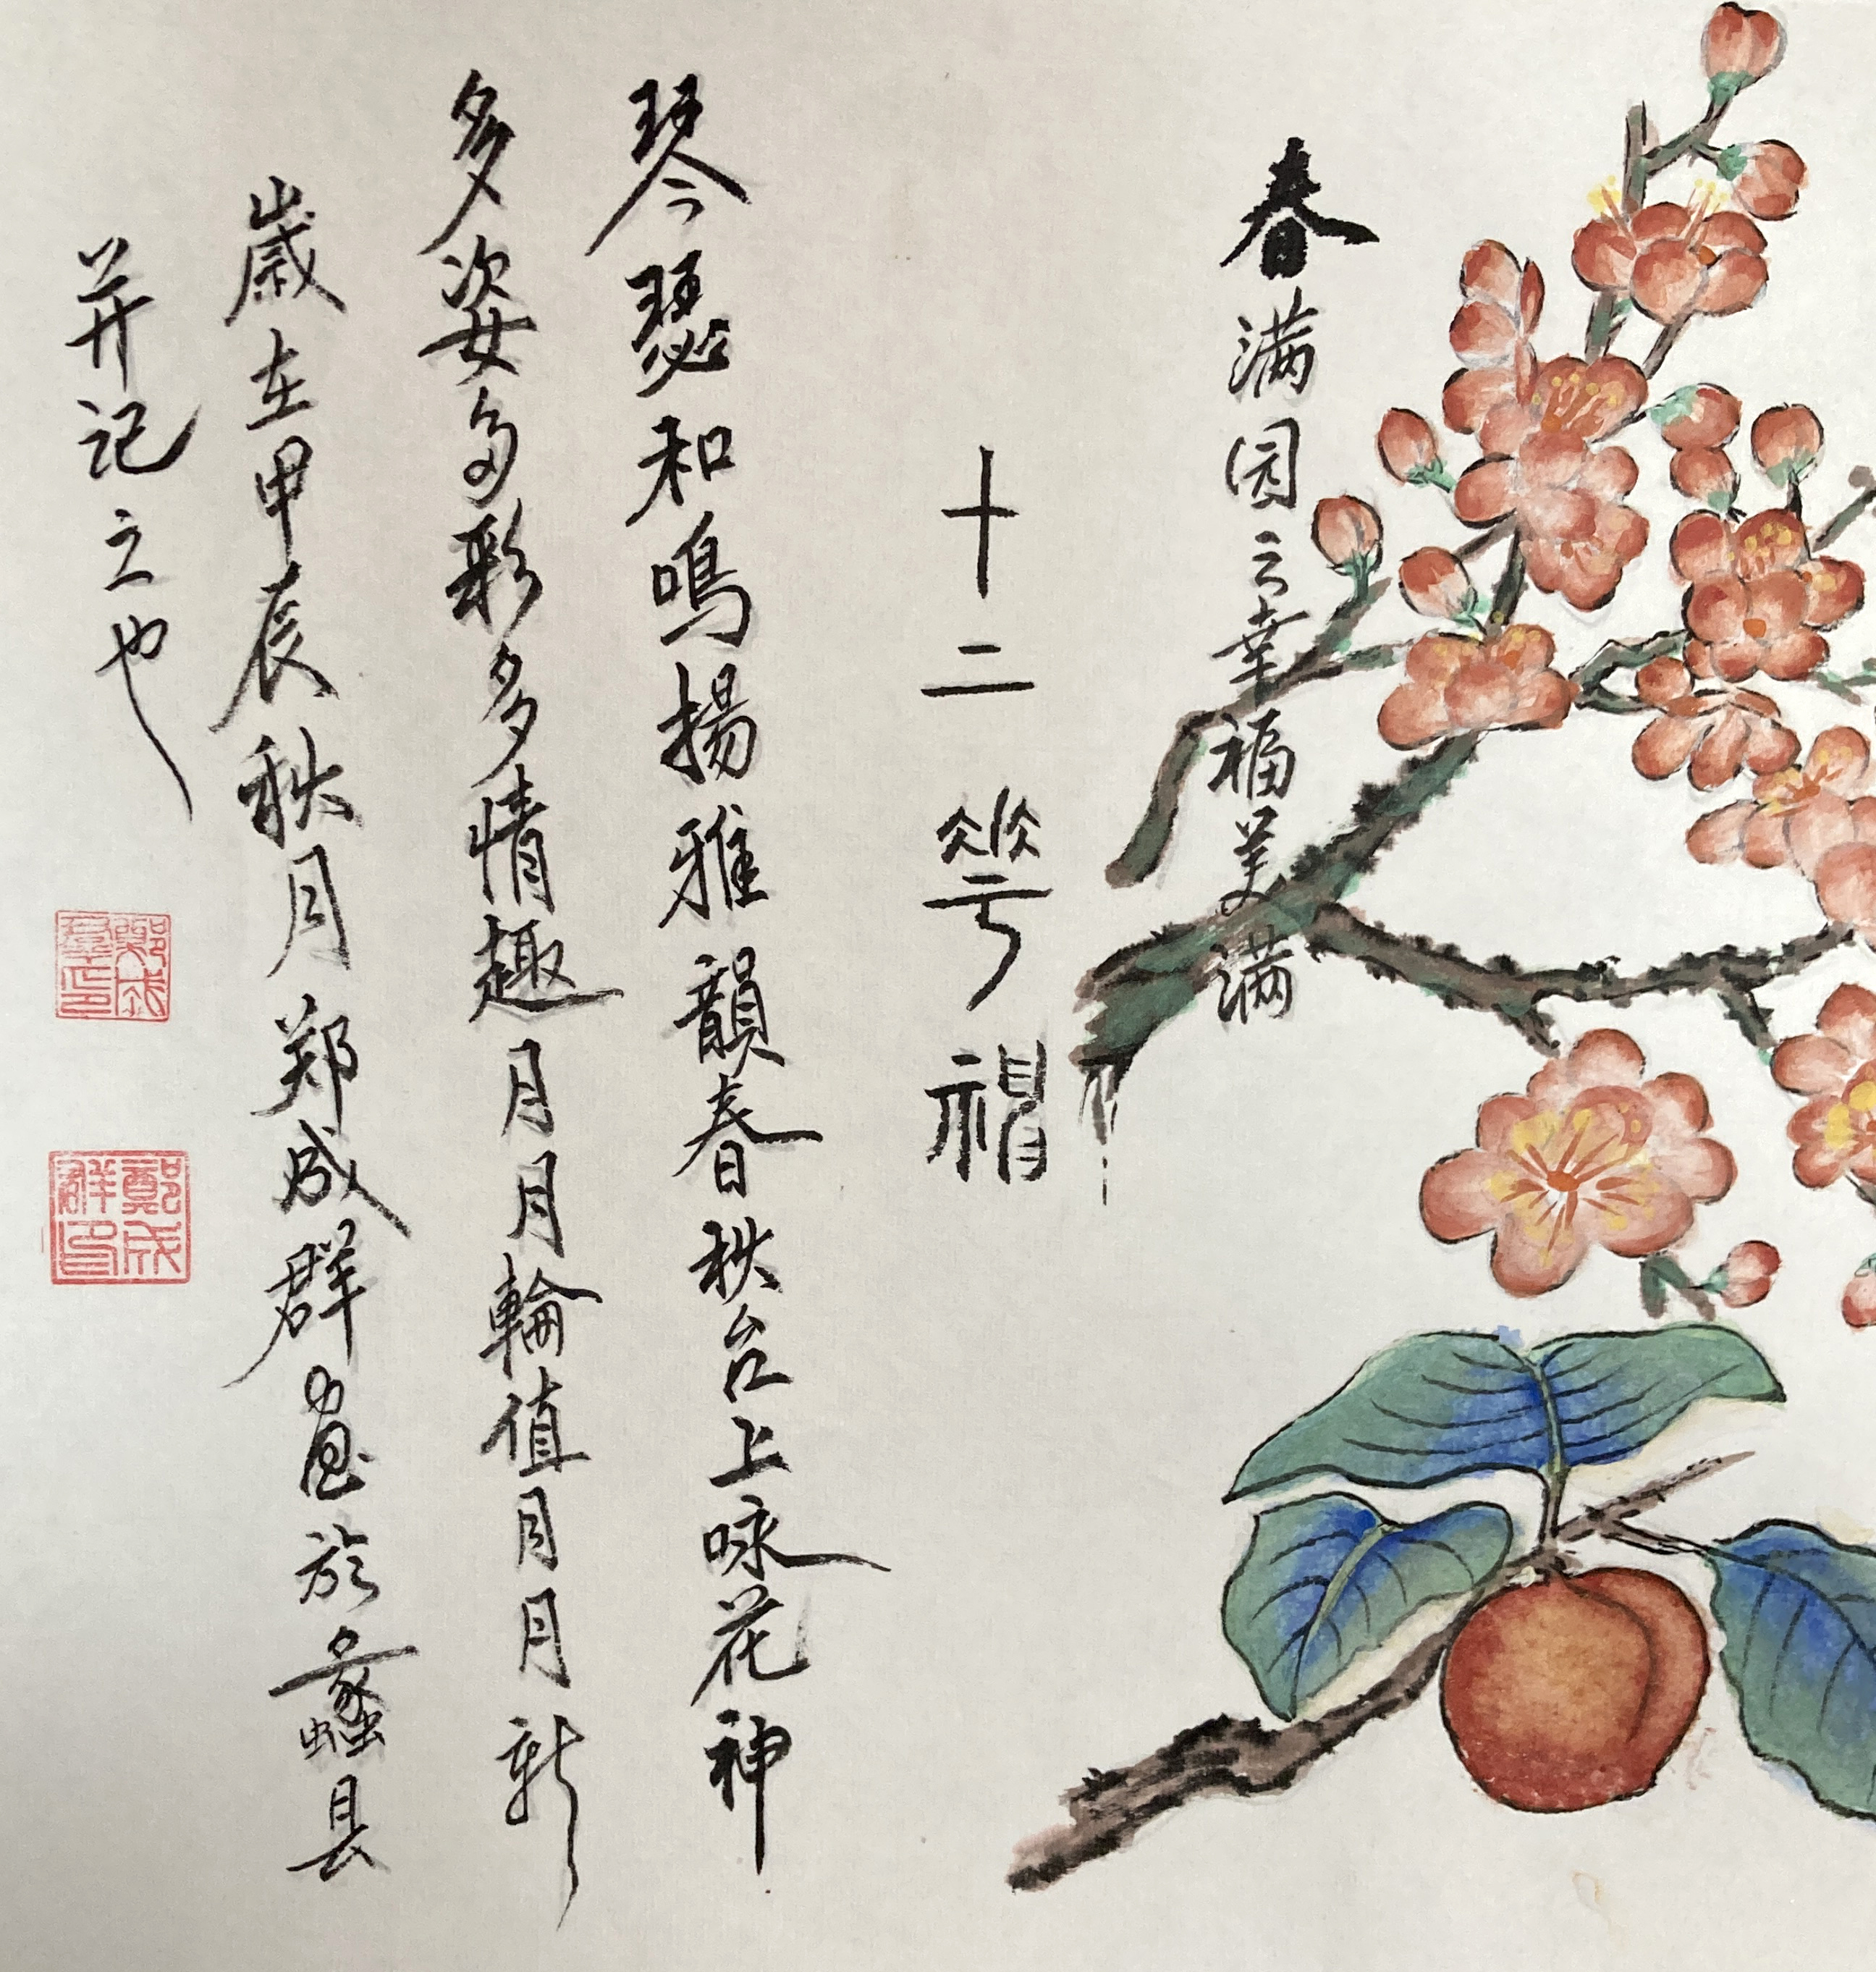 春满园之幸福美满
十二花神
琴瑟和鳴揚雅韻春秋台上咏花神
多姿多彩多情趣月月輪值月月新
歲在甲辰秋月郑成群畫於蠡县
并记之也
鄭成羣印
鄭成群印